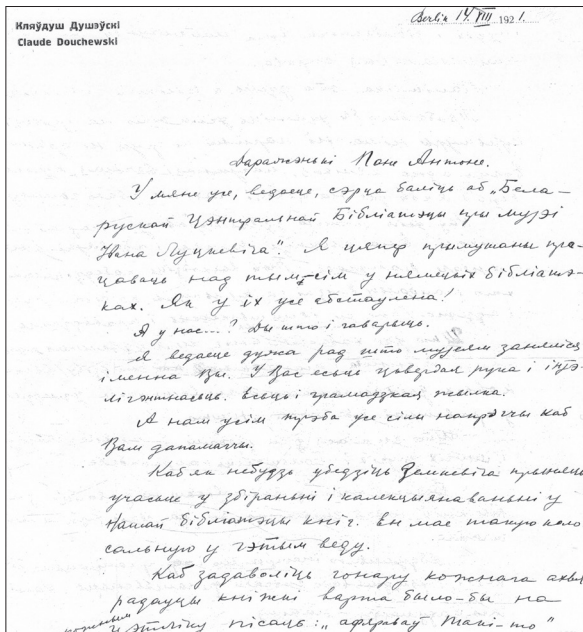 Кляўдуш Душэўскі
Claude Douchewski
Berlin 14 VIII 1921.
Даражэнькі Пане Антоне.
У мяне уж, ведаеце, сэрца баліць аб „Бела-
рускай Цэнтральнай Бібліатэцы пры музэі
Івана Луцкевіча". Я цяпер прымушаны пра-
цаваць над тым-сім у нямецкіх бібліатэ-
ках. Як у іх усё абстаулена!
А у нас...? Ды што і гаварыць.
Я ведаеце дужа рад што музеям заняліся
іменна Вы. У Вас ёсьць цьвёрдая рука і інтэ-
лігэнтнасьць. ёсьць і грамадзкая жылка.
А нам усім трэба усе сілы напрэччы каб
Вам дапамаччы.
Каб як небудзь убедзіць Земкевіча прыняць
учасьце у збіраньні і калекцыянаваньні у
Нашай бібліатэцы кніг. Ён мае такую кало
сальную у гэтым веду.
Каб задаволіць гонару кожнага ахвя
радауцы кніжкі важна было-бы на
кожным
пісаць: „афяраваў такі-то"